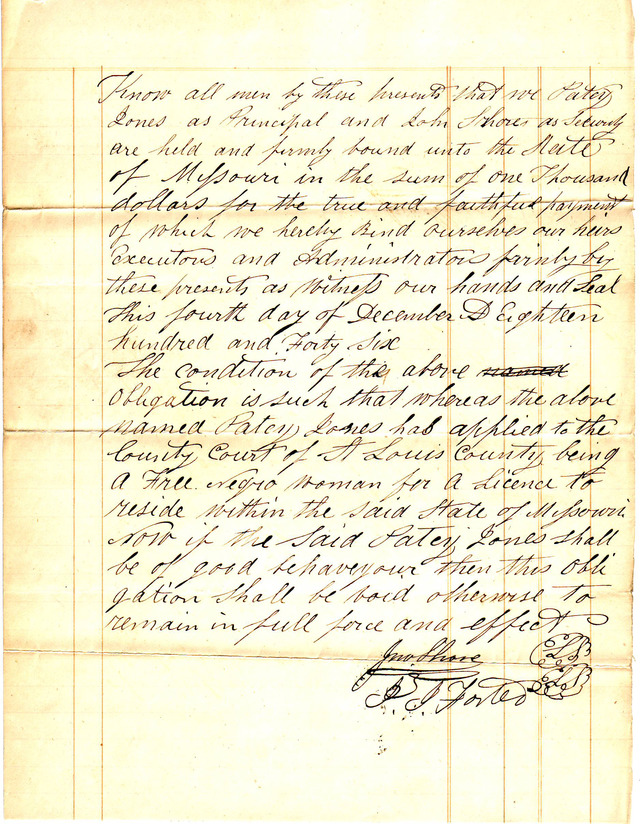 Know all men by these presents that we Patey
Jones as Principal and John Shores as Security
are held and firmly bound unto the State
of Missouri in the sum of one Thousand
dollars for the true and faithful payment
of which we hereby Bind ourselves our heirs
Executors and Administrators firmly by
these presents as Witness our hands and Seal
This fourth day of December D Eighteen
hundred and Forty Six
The condition of the above named
Obligation is such that whereas the above
named Patey Jones has applied to the
County Court of St Louis County being
A Free Negro woman for A Licence to
reside within the said State of Missouri
Now if the Said Patey Jones shall
be of good behaveyour then this obli
gation shall be void otherwise to
remain in full force and effect
Jno Shore
P J Foster